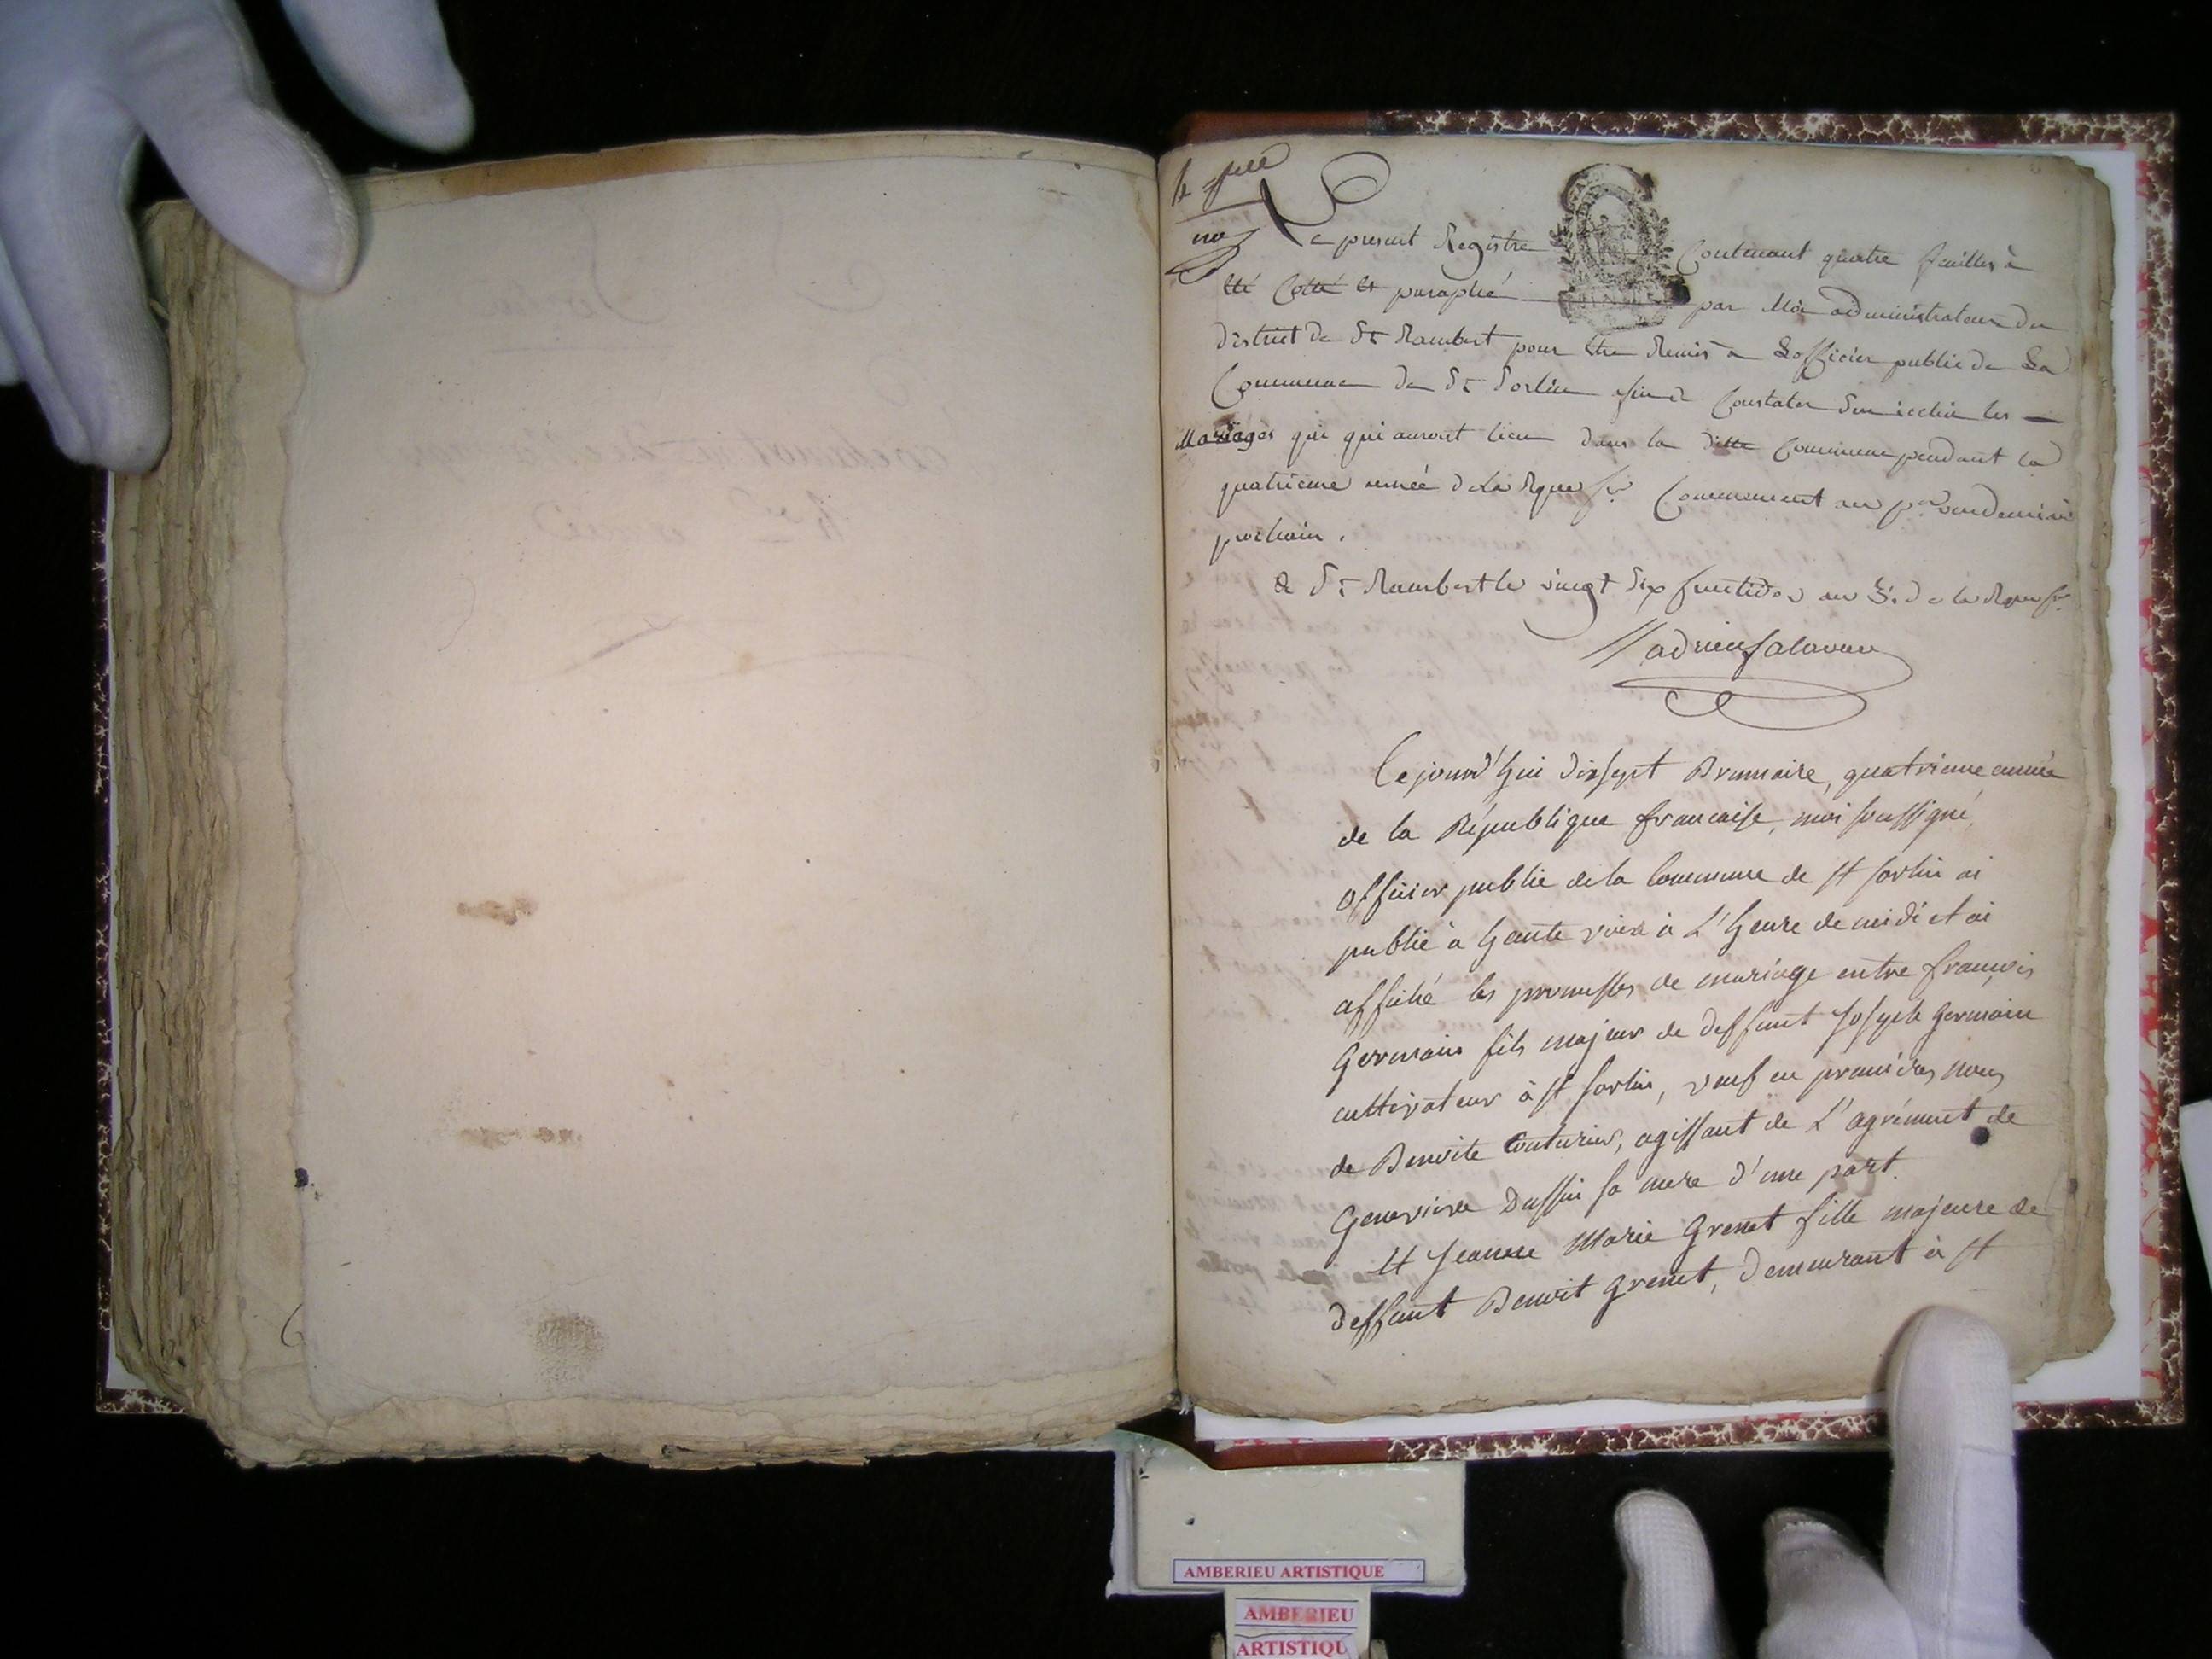 Le present Registre Contenant quatre feuilles à
été Cotté et paraphé par Moi administrateur du
district de St Rambert pour être Remis a Lofficier public de La
Commune de St Sorlin afin de Constater Sur icelui les
Mariages qui qui auront lieu dans la ditte Commune pendant la
quatrieme année de la Rque fse Commencent au per vendemiaire
prochain.
a St Rambert le vingt Six fructidor an 3e. de la Rque fse
Cejourd'hui dixsept Brumaire, quatrieme année
de la République francaise, moi soussigné
officier public de la Commune de st sorlin ai
publié a haute voix à L'heure de midi et ai
affiché les promesses de mariage entre françois
Germain fils majeur de deffunt Joseph Germain
cultivateur à st sorlin, veuf en premières noces
de Benoite Couturier, agissant de L'agrément de
Genevieve Dussin sa mere d'une part.
Et Jeanne Marie Grenet fille majeure de
deffunt Benoit Grenet, demeurant à st
AMBERIEU ARTISTIQUE
AMBERIEU
ARTISTIQU